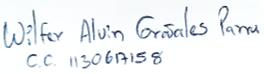 Wilfer Alvin Grañales Parra
C.C. 113067158